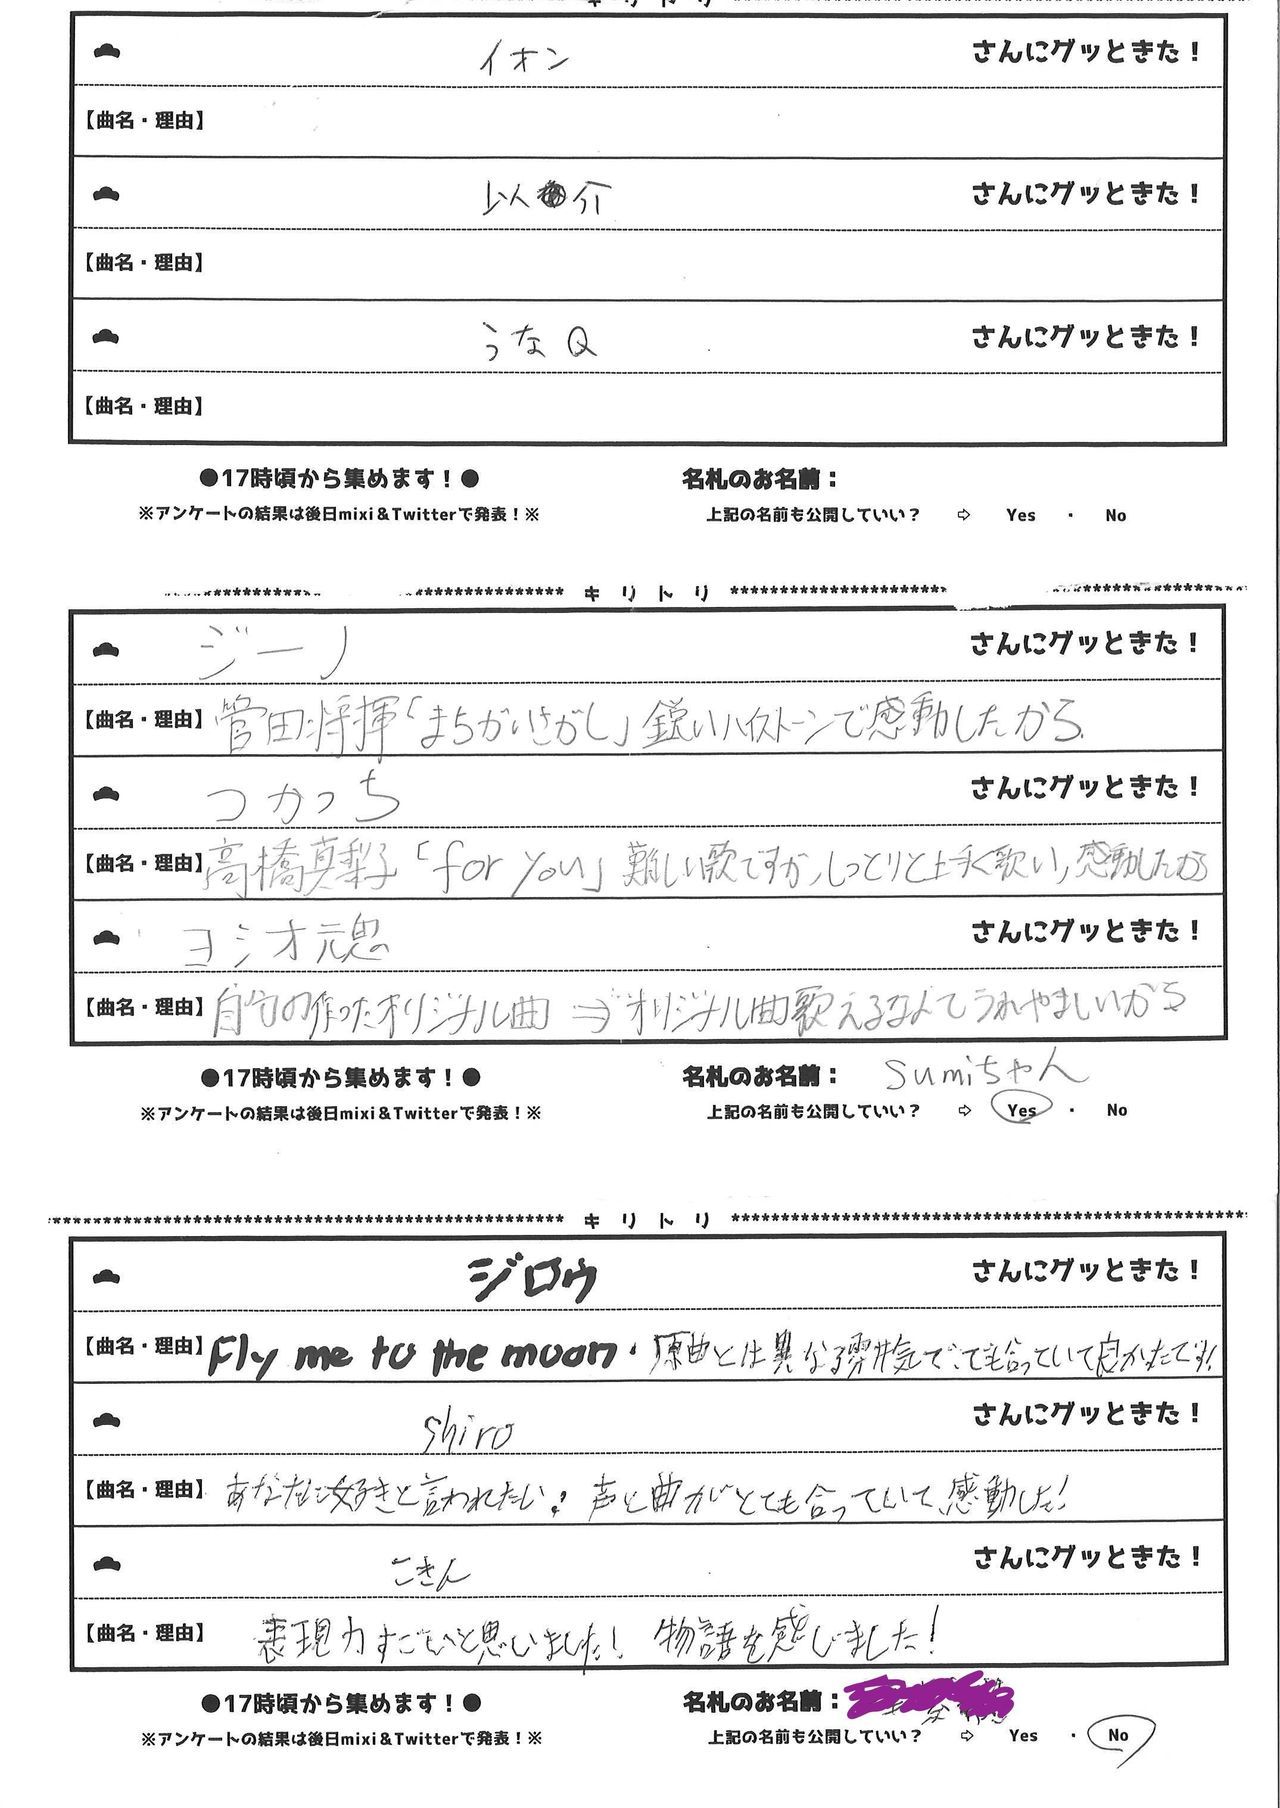 キ リ ト リ
イオン さんにグッときた!
【曲名・理由】
以 介 さんにグッときた!
【曲名・理由】
うなQ さんにグッときた!
【曲名・理由】
●17時頃から集めます!● 名札のお名前:
※アンケートの結果は後日mixi&Twitterで発表!※ 上記の名前も公開していい? ⇨ Yes ・ No
**************** キ リ ト リ **********************
ジーノ さんにグッときた!
【曲名・理由】 菅田将揮「まちがいさがし」鋭いハイトーンで感動したから
つかっち さんにグッときた!
【曲名・理由】 高橋真梨子「for you」難しい歌ですが、しっとりと上手く歌い、感動したから
ヨシオ元 さんにグッときた!
【曲名・理由】 自分の作ったオリジナル曲 ⇒オリジナル曲歌えるなんてうれやましいから
●17時頃から集めます!● 名札のお名前: sumiちゃん
※アンケートの結果は後日mixi&Twitterで発表!※ 上記の名前も公開していい? ⇨ Yes ・ No
**************** キ リ ト リ **********************
ジロウ さんにグッときた!
【曲名・理由】 Fly me to the moon・原曲とは異なる雰井気でとても合っていて良かったです!
shiro さんにグッときた!
【曲名・理由】 あなたに好きと言われたい: 声と曲がとても合っていて、感動した!
こきん さんにグッときた!
【曲名・理由】 表現力すごいと思いました! 物語を感じました!
●17時頃から集めます!● 名札のお名前:
※アンケートの結果は後日mixi&Twitterで発表!※ 上記の名前も公開していい? ⇨ Yes ・ No